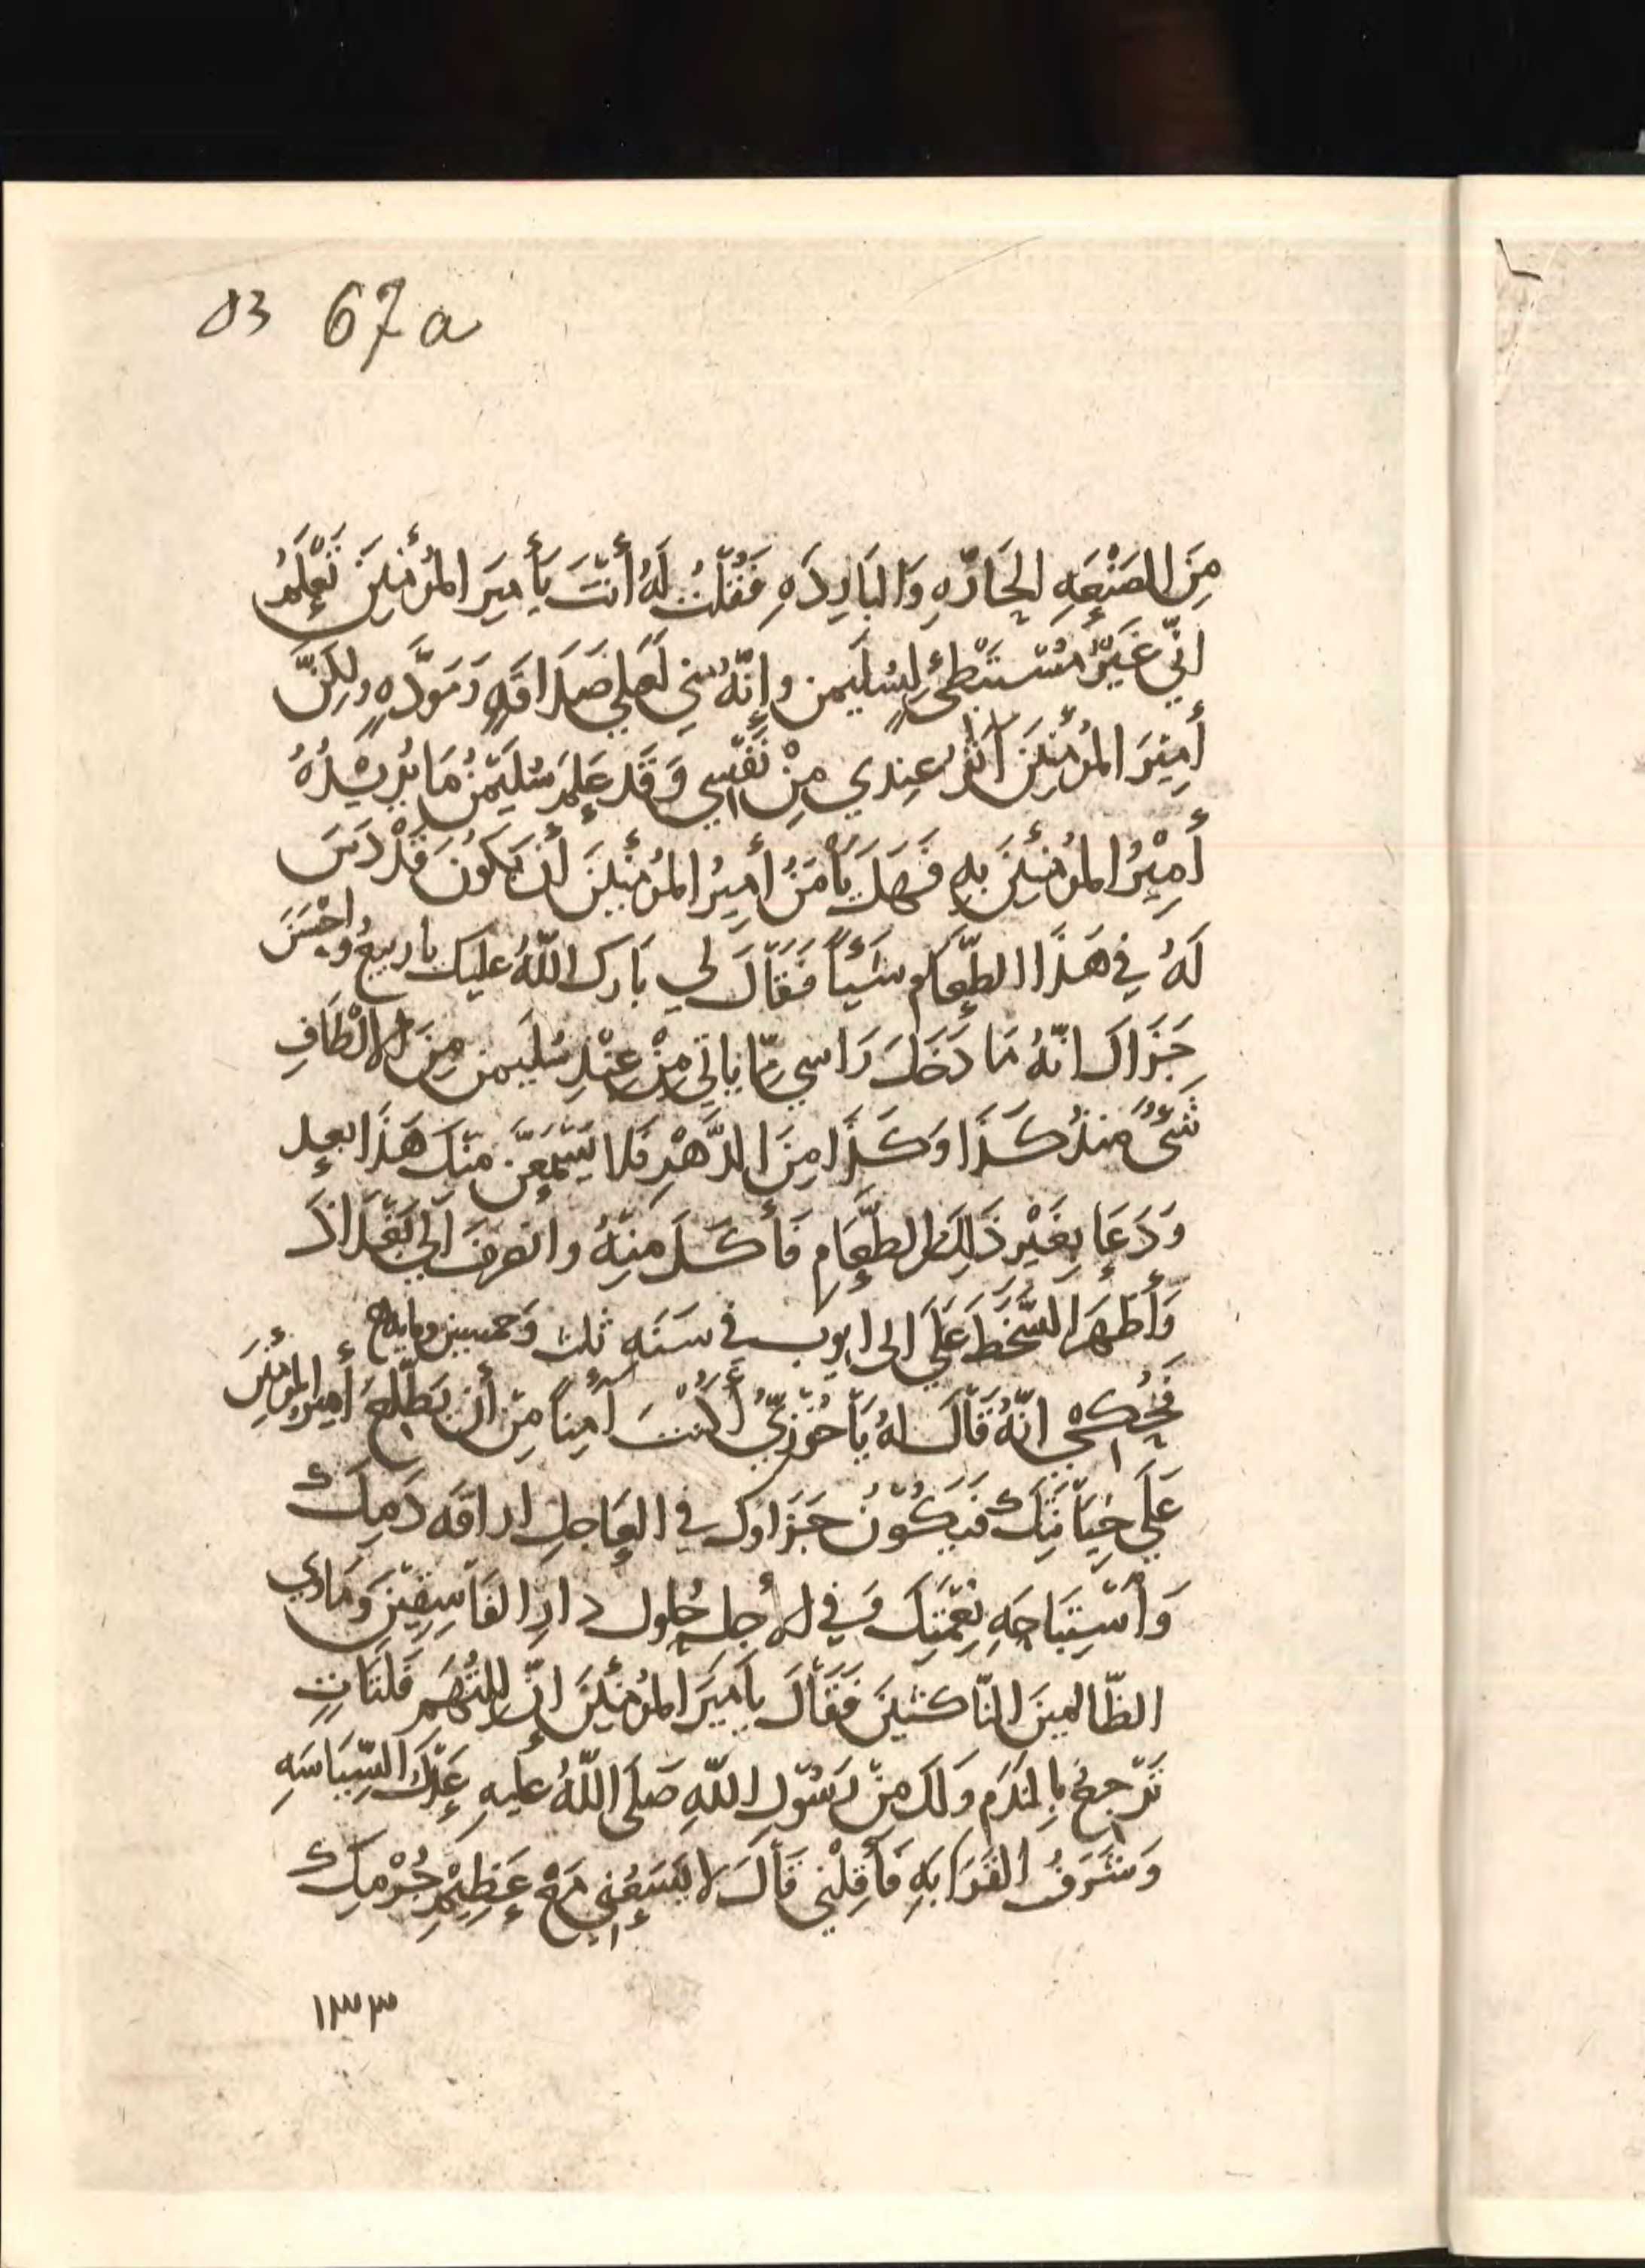 83 67a
مِنَ الصَنْعَهِ الحَارّهِ وَالبَارِدَهِ فَقُلْتُ لَهُ أنْتَ يَأمِيرَ المُؤْمِنِينَ تَعْلَمُ
انّي غَيْرُ مُسْتَبْطِئٍ لِسُلَيمن وإنّهُ مني لَعَلي صَدَاقَهٍ وَمَوَدَّهٍ ولكِنَّ
أمِيْرَ المُؤْمِنِينَ آثَرُ عِندي مِنْ نَفْسِي وَقَد عَلِمَ سُلَيْمَنُ مَا يُرِيْدُهُ
أمِيْرُ المُؤْمِنِينَ بِهِ فَهَلْ يَأْمَنُ أمِيرُ المُؤْمِنِينَ أن يَكُونَ قَدْ دَسَّ
لَهُ فِي هَذَا الطَّعَام شَيْأً فَقَالَ لي بَارَك اللّهُ عليك ياربيعُ واحْسَنَ
جَزَاكَ انّهُ مَا دَخَلَ رَاسي مِمّا ياتي مِنْ عِنْدِ سُليمن مِنَ الالْطَافِ
شَيْءٌ منذُ كَذَا وَكَذَا مِنَ الدَّهْرِ فَلا يُسْمَعَنَّ مِنْكَ هَذَا بعد
وَدَعَا بِغَيْرِ ذَلِكَ الطَّعَامِ فَأكَلَ مِنهُ وانصرفَ الَى بَغْدَاذَ
وَأظهَرَ السَّخَطَ عَلَى ابى ايوب في سَنَهِ ثلث وَخمسين ومايه
فَحُكِيَ انَّهُ قَالَ لهُ يَا خُوْزِيُّ أكُنْتَ آمِناً مِنْ أن يَطَّلِعَ أمِيرُ المُؤْمِنِينَ
عَلَي خِيَانَتِكَ فَيَكُوْنُ جَزَاوك فِي العَاجِلِ اراقَه دَمِكَ
وَاسْتِبَاحَهِ نِعْمَتِكَ وَفِي الآجِل حُلول دارِ الفَاسِقِيْنَ وَمَاوَى
الظَّالمِينَ النّاكثينَ فَقَالَ يأمِيرَ المُؤْمِنِينَ إنَّ لِلتُّهَمِ فَلَتَاتٍ
تَرْجِعُ بِالنَدَم وَلَكَ مِنْ رَسُوْلِ اللّهِ صَلّى اللّهُ عَليهِ عَدْلُ السِّيَاسَهِ
وَشَرَفُ القَرَابَهِ فَأقِلْنِي قَالَ لا يَسَعُنِي مَعَ عَظِيْمِ جُرْمِكَ
١٣٣